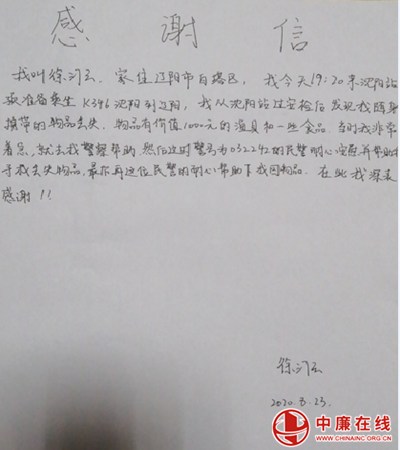 感谢信
我叫徐河云、家住辽阳市白塔区,我今天19:20来沈阳站
准备乘坐K396沈阳到辽阳,我从沈阳站过安检后发现我随身
携带的物品丢失、物品有价值1000元的渔具和一些食品。当时我非常
着急,就去找警察帮助,然后这时警号为032242的民警耐心安慰,并帮助
寻找丢失物品,最尔再这位民警的耐心帮助下找回物品。在此我深表
感谢!!
徐河云
2020.8.23.
中廉在线
WWW.CHINAINC.ORG.CN